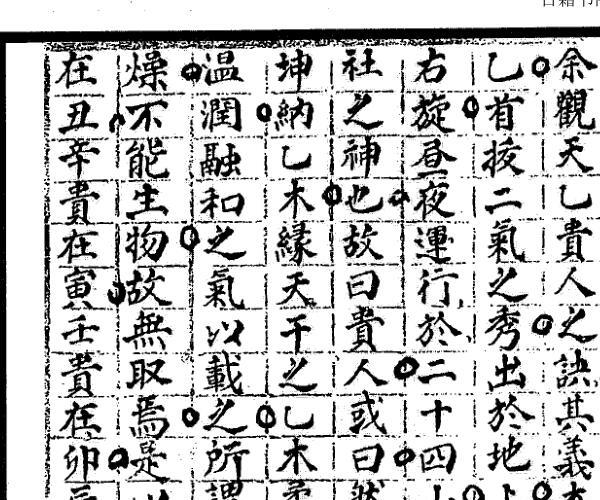 余觀天乙貴人之訣其義
乙首授二氣之秀出於地
右旋昼夜運行於二十四
社之神也故曰貴人或曰
坤納乙木緣天干之乙木
温潤融和之氣以載之所
燥不能生物故無取焉是
在丑辛貴在寅壬貴在卯